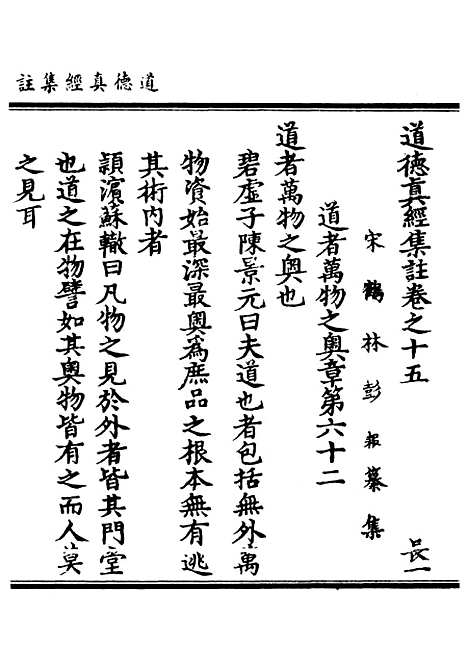 道德真經集註
道德真經集註卷之十五
長一
宋鶴林彭耜纂集
道者萬物之奧章第六十二
道者萬物之奧也
碧虛子陳景元曰夫道也者包括無外萬
物資始最深最奧爲庶品之根本無有逃
其術內者
頴濱蘇轍曰凡物之見於外者皆其門堂
也道之在物譬如其奧物皆有之而人莫
之見耳